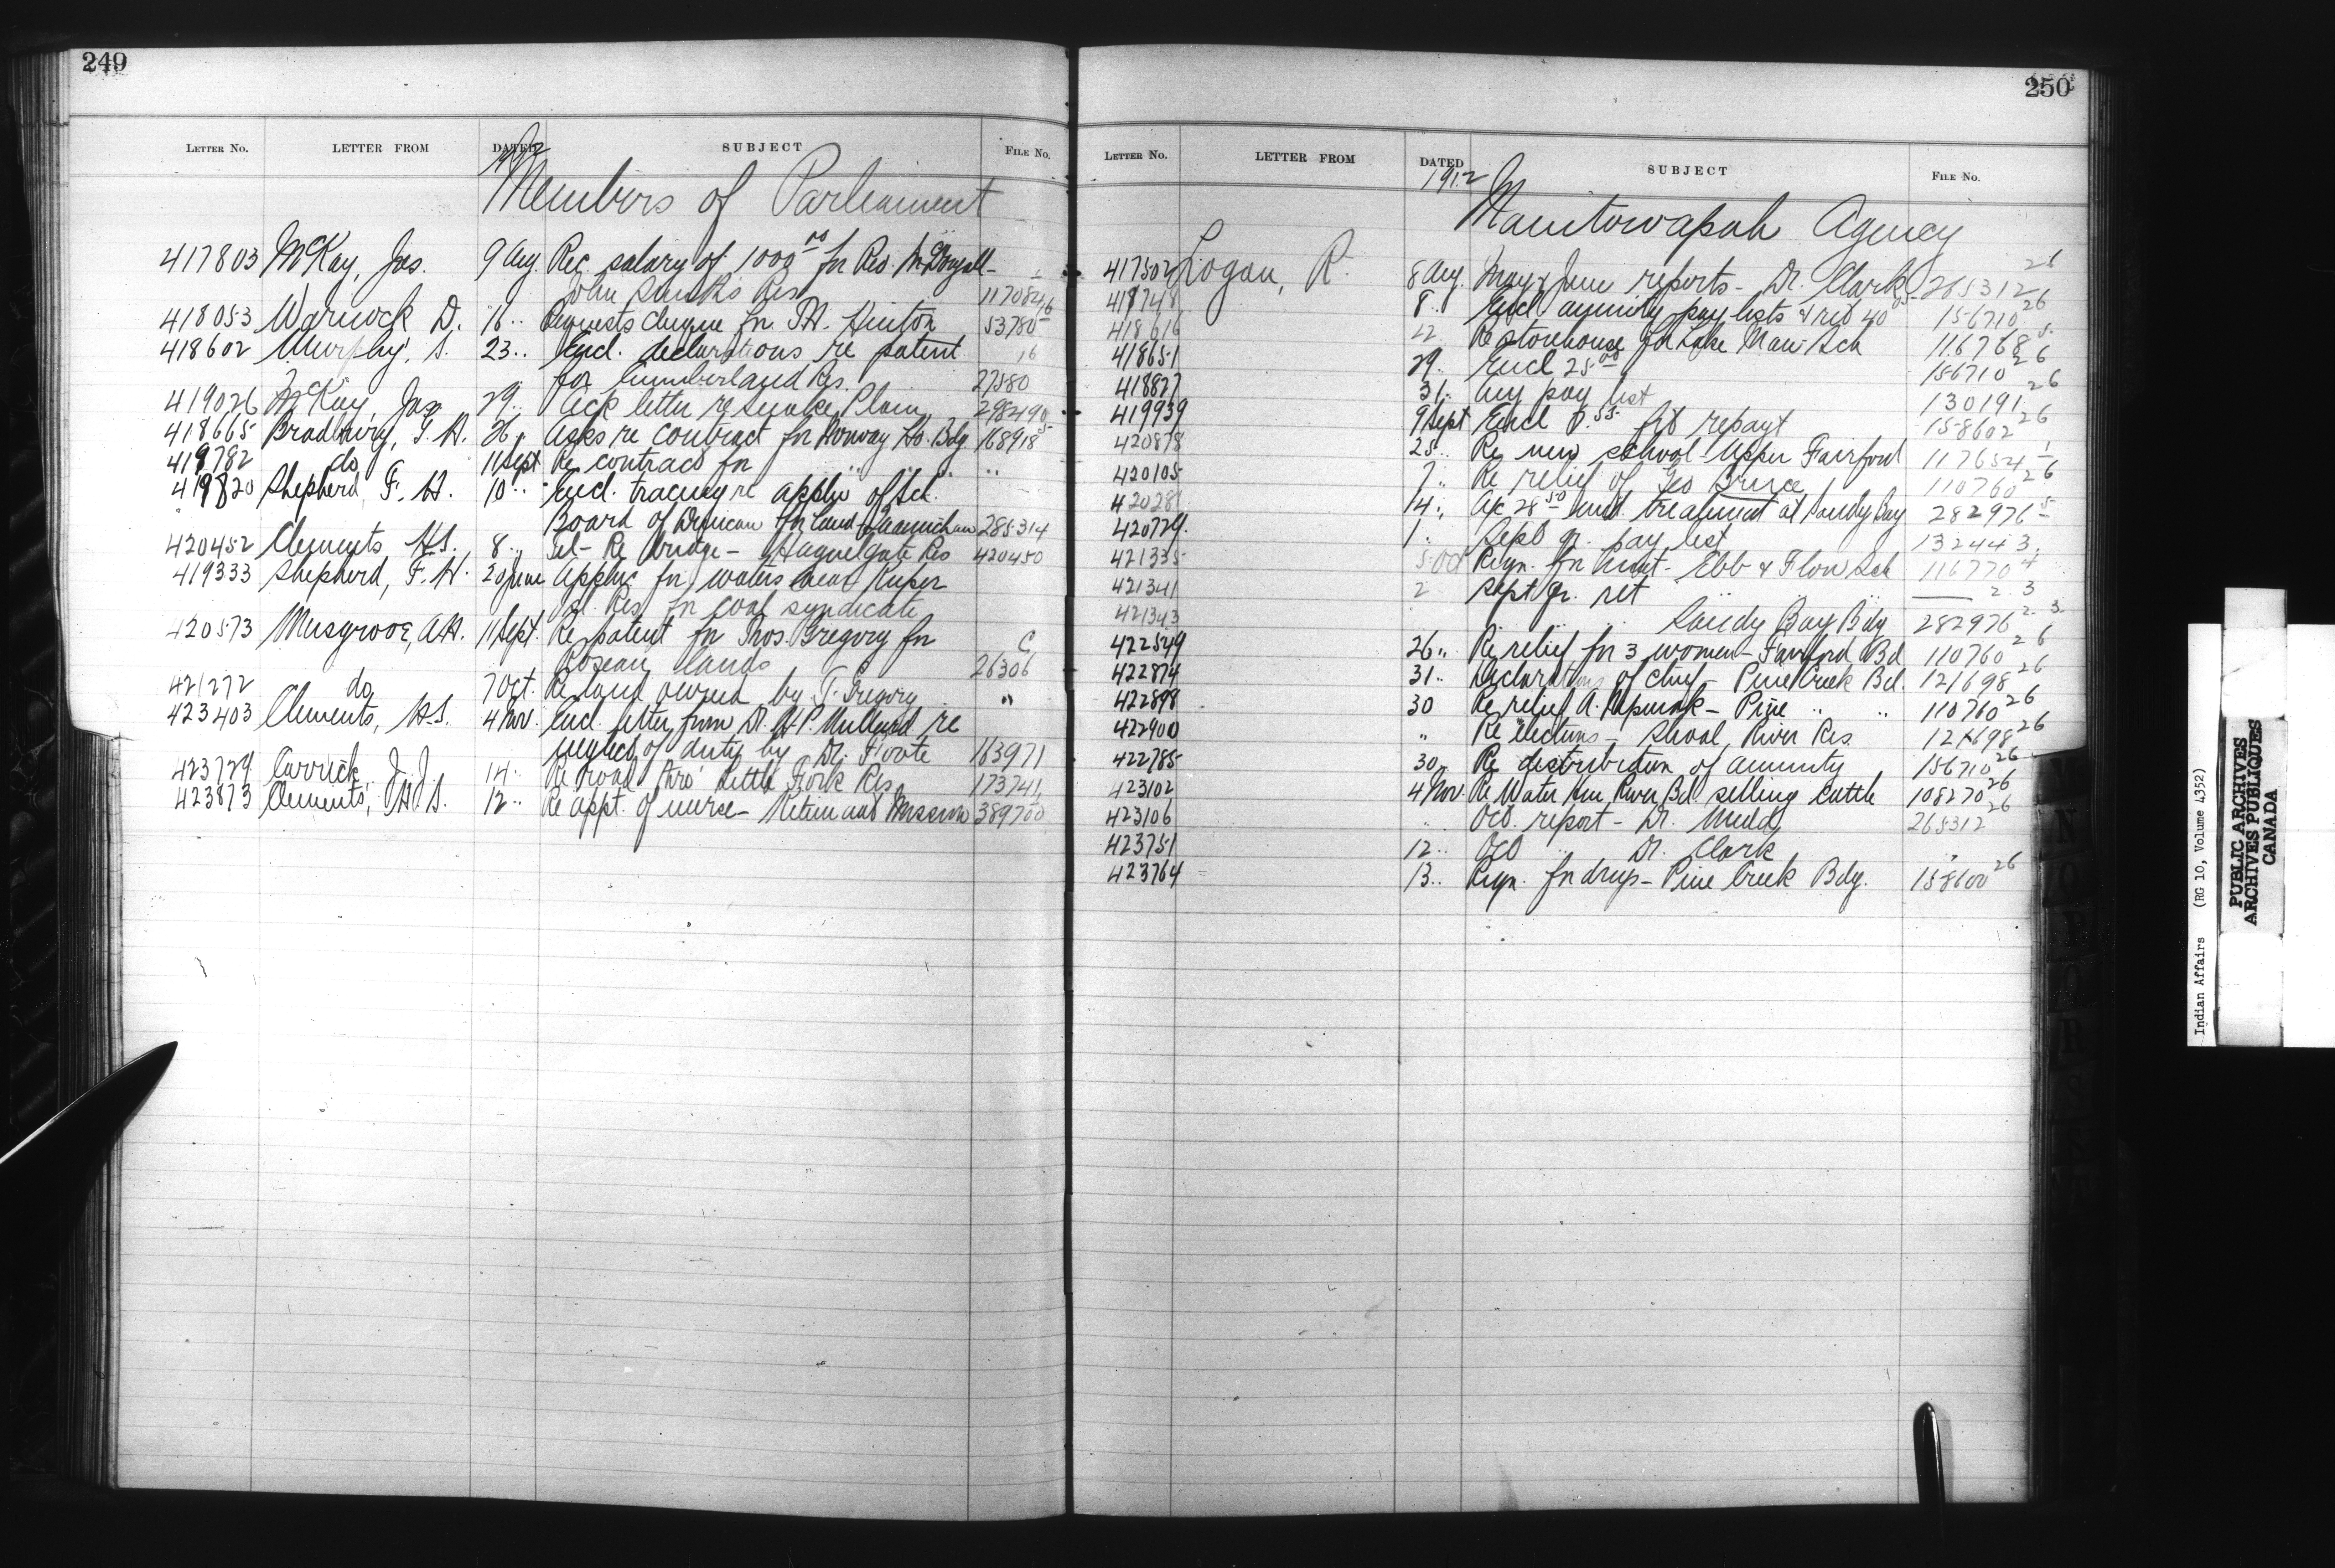 249
LETTER NO. LETTER FROM DATED SUBJECT FILE NO.
1912
Members of Parliament
417803 McKay, Jas. 9 Aug. Rec salary of 1000.00 for Rev. McDougall-
John Smith's Res 117084
418053 Warnock D. 16 " Requests cheque for Hinton 53780
418602 Murphy, S. 23 " Encl. declarations re patent 16
for Cumberland Res. 27580
419026 McKay, Jas 29 " Ack letter re Snake Plain 298490
418665 Bradbury, G. H. 26 " Asks re contract for Norway Ho. Bdg 168918 5
419782 do 11 Sept Re contract for " " " "
419820 Shepherd, F. H. 10 " Encl. tracing re applic of Sch.
Board of Duncan for land - Quamichan 285314
420452 Clements H.S. 8 " Tel- Re bridge - Hagwelgate Res 420450
419333 Shepherd, F. H. 20 June Applic for waters near Kuper
Id. Res. for coal syndicate
420573 Musgrove, A.H. 11 Sept. Re patent for Thos. Gregory for C
Roseau lands 26306
421272 do 7 Oct. Re land owned by T. Gregory "
423403 Clements, H.S. 4 Nov. Encl. letter from Dr. H.P. Millard re
neglect of duty by Dr. Foote 163971
423729 Carrick J. J. 14 " Re road thro' Little Fork Res 173741
423873 Clements, H.S. 12 " Re appt. of nurse - Metlakatla Mission 389700
250
LETTER NO. LETTER FROM DATED SUBJECT FILE NO.
1912
Manitowapah Agency
417502 Logan, R. 8 Aug. May & June reports - Dr. Clark 265312 26
417748 8 " Encl annuity pay lists & 40 156710 26
418616 22 Re storehouse for Lake Man. Sch 116768 5
418651 29. Encl 25.00 156710 26
418827 31. Aug pay list 130191 26
419939 9 Sept Encl repayt 158602 26
420878 25 " Re new school Upper Fairford 117654 1
420105 7 " Re relief of Geo Bruce 110760 26
420281 14 " A/c 28.50 med. treatment at Sandy Bay 282976 5
420729 1 " Sept qr. pay list 132443
421335 5 Oct Reqn. for Ebb & Flow Sch 116770 4
421341 2 Sept qr. ret 2. 3
421343 " " " Sandy Bay Bdg 282976 2. 3.
422549 26 " Re relief for 3 women - Fairford Bd 110760 26
422874 31 " Declarations of chief - Pine Creek Bd. 121698 26
422898 30 Re relief A. - Pine " " 110760 26
422900 " Re elections - Shoal River Res 121698 26
422785 30 " Re distribution of annuity 156710 26
423102 4 Nov. Re Water Hen River Bd. selling cattle 108270 26
423106 " Oct. report - Dr. 265312 26
423751 12 " Oct " Dr. Clark "
423764 13 " Reqn. for drugs - Pine Creek Bdg. 158600 26
Indian Affairs (RG 10, Volume 4352)
PUBLIC ARCHIVES
ARCHIVES PUBLIQUES
CANADA